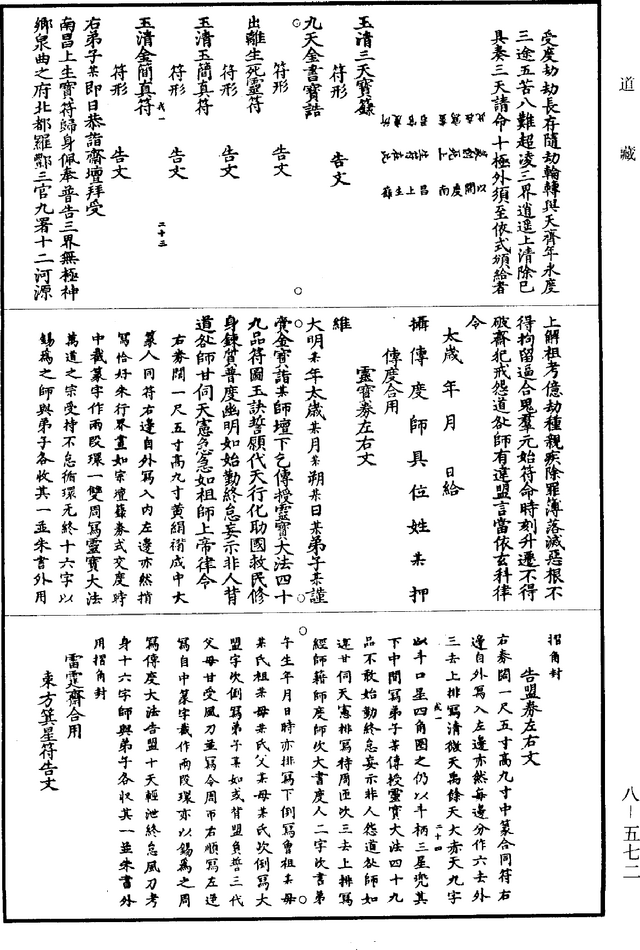 道藏
受度劫劫長存隨劫輪轉與天齊年永度
三途五苦八難超凌三界逍遥上清除已
具奏三天請命十極外須至依式頒給者
玉清三天寶籙
符形　告文
九天金書寶誥
符形　告文
出離生死靈符
符形　告文
玉清玉簡真符
符形　告文
玉清金簡真符
符形　告文
右弟子某即日恭詣齋壇拜受
南昌上生寶符歸身佩奉普告三界無極神
鄉泉曲之府北都羅酆三官九署十二河源
上解祖考億劫種親疾除罪簿落滅惡根不
得拘留逼合鬼羣元始符命時刻升遷不得
破齋犯戒怨道咎師有違盟言當依玄科律
令
太歲　年　月　日給
攝傳度師具位姓某押
傳度合用
靈寶券左右文
維
大明某年太歲某月某朔某日某弟子某謹
賫金寶詣某師壇下乞傳授靈寶大法四十
九品符圖玉訣誓願代天行化助國救民修
身鍊質普度幽明如始勤終怠妄示非人背
道咎師甘伺天憲急急如祖師上帝律令
右券闊一尺五寸高九寸黃絹㨿成中大
篆人同符右邊自外寫入内左邊亦然㨂
寫恰好朱行界畫如宗壇籙券式交度時
中裁篆字作兩段環一雙周寫靈寶大法
萬道之宗受持不怠循環无終十六字以
錫爲之師與弟子各收其一並朱書外用
摺角封
告盟券左右文
右券闊一尺五寸高九寸中篆合同符右
邊自外寫入左邊亦然每邊分作六去外
三去上排寫清微天禹餘天大赤天九字
以斗口星四角圍之仍以斗柄三星兜其
下中間寫弟子某傳授靈寶大法四十九
品不敢始勤終怠妄示非人怨道咎師如
違甘伺天憲排寫待周匝次三去上排寫
經師籍師度師次大書度人二字次書第
午生年月日時亦排寫下倒寫曾祖某母
某氏祖某母某氏父某母某氏次倒寫大
盟字次倒寫弟子某如或背盟負誓三代
父母甘受風刀並寫令周币右順寫左逆
寫自中篆字裁作兩段環亦以錫爲之周
寫傳度大法告盟十天輕泄終怠風刀考
身十六字師與弟子各收其一並朱書外
用摺角封
雷霆齋合用
東方箕星符告文
八－五七二